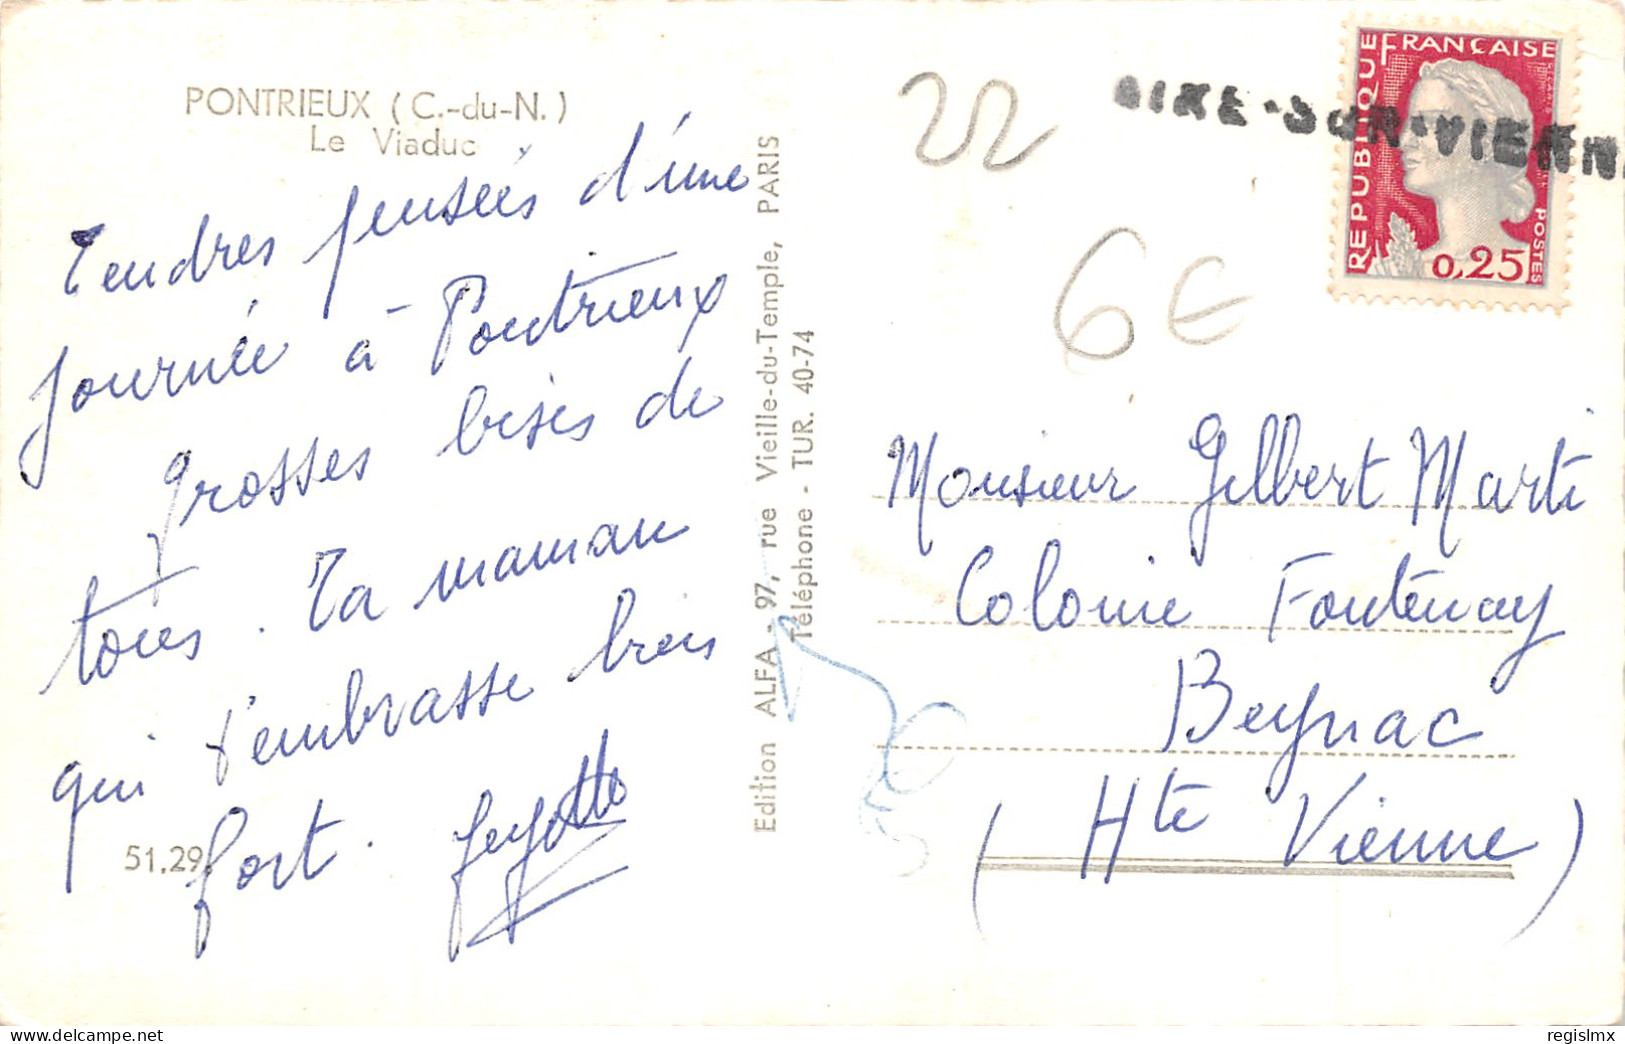 PONTRIEUX (C.-du-N.)
Le Viaduc
Tendres pensées d'une
journée à Pontrieux
Grosses bises de
tous. Ta maman
qui t'embrasse bien
fort.
51.29
Edition ALFA - 97, rue Vieille-du-Temple, PARIS
Téléphone - TUR. 40-74
22
6€
AIXE-SUR-VIENN
REPUBLIQUE FRANÇAISE
POSTES
0,25
Monsieur Gilbert Marti
Colonie Fontenay
Beynac
(Hte Vienne)
regislmx
delcampe.net